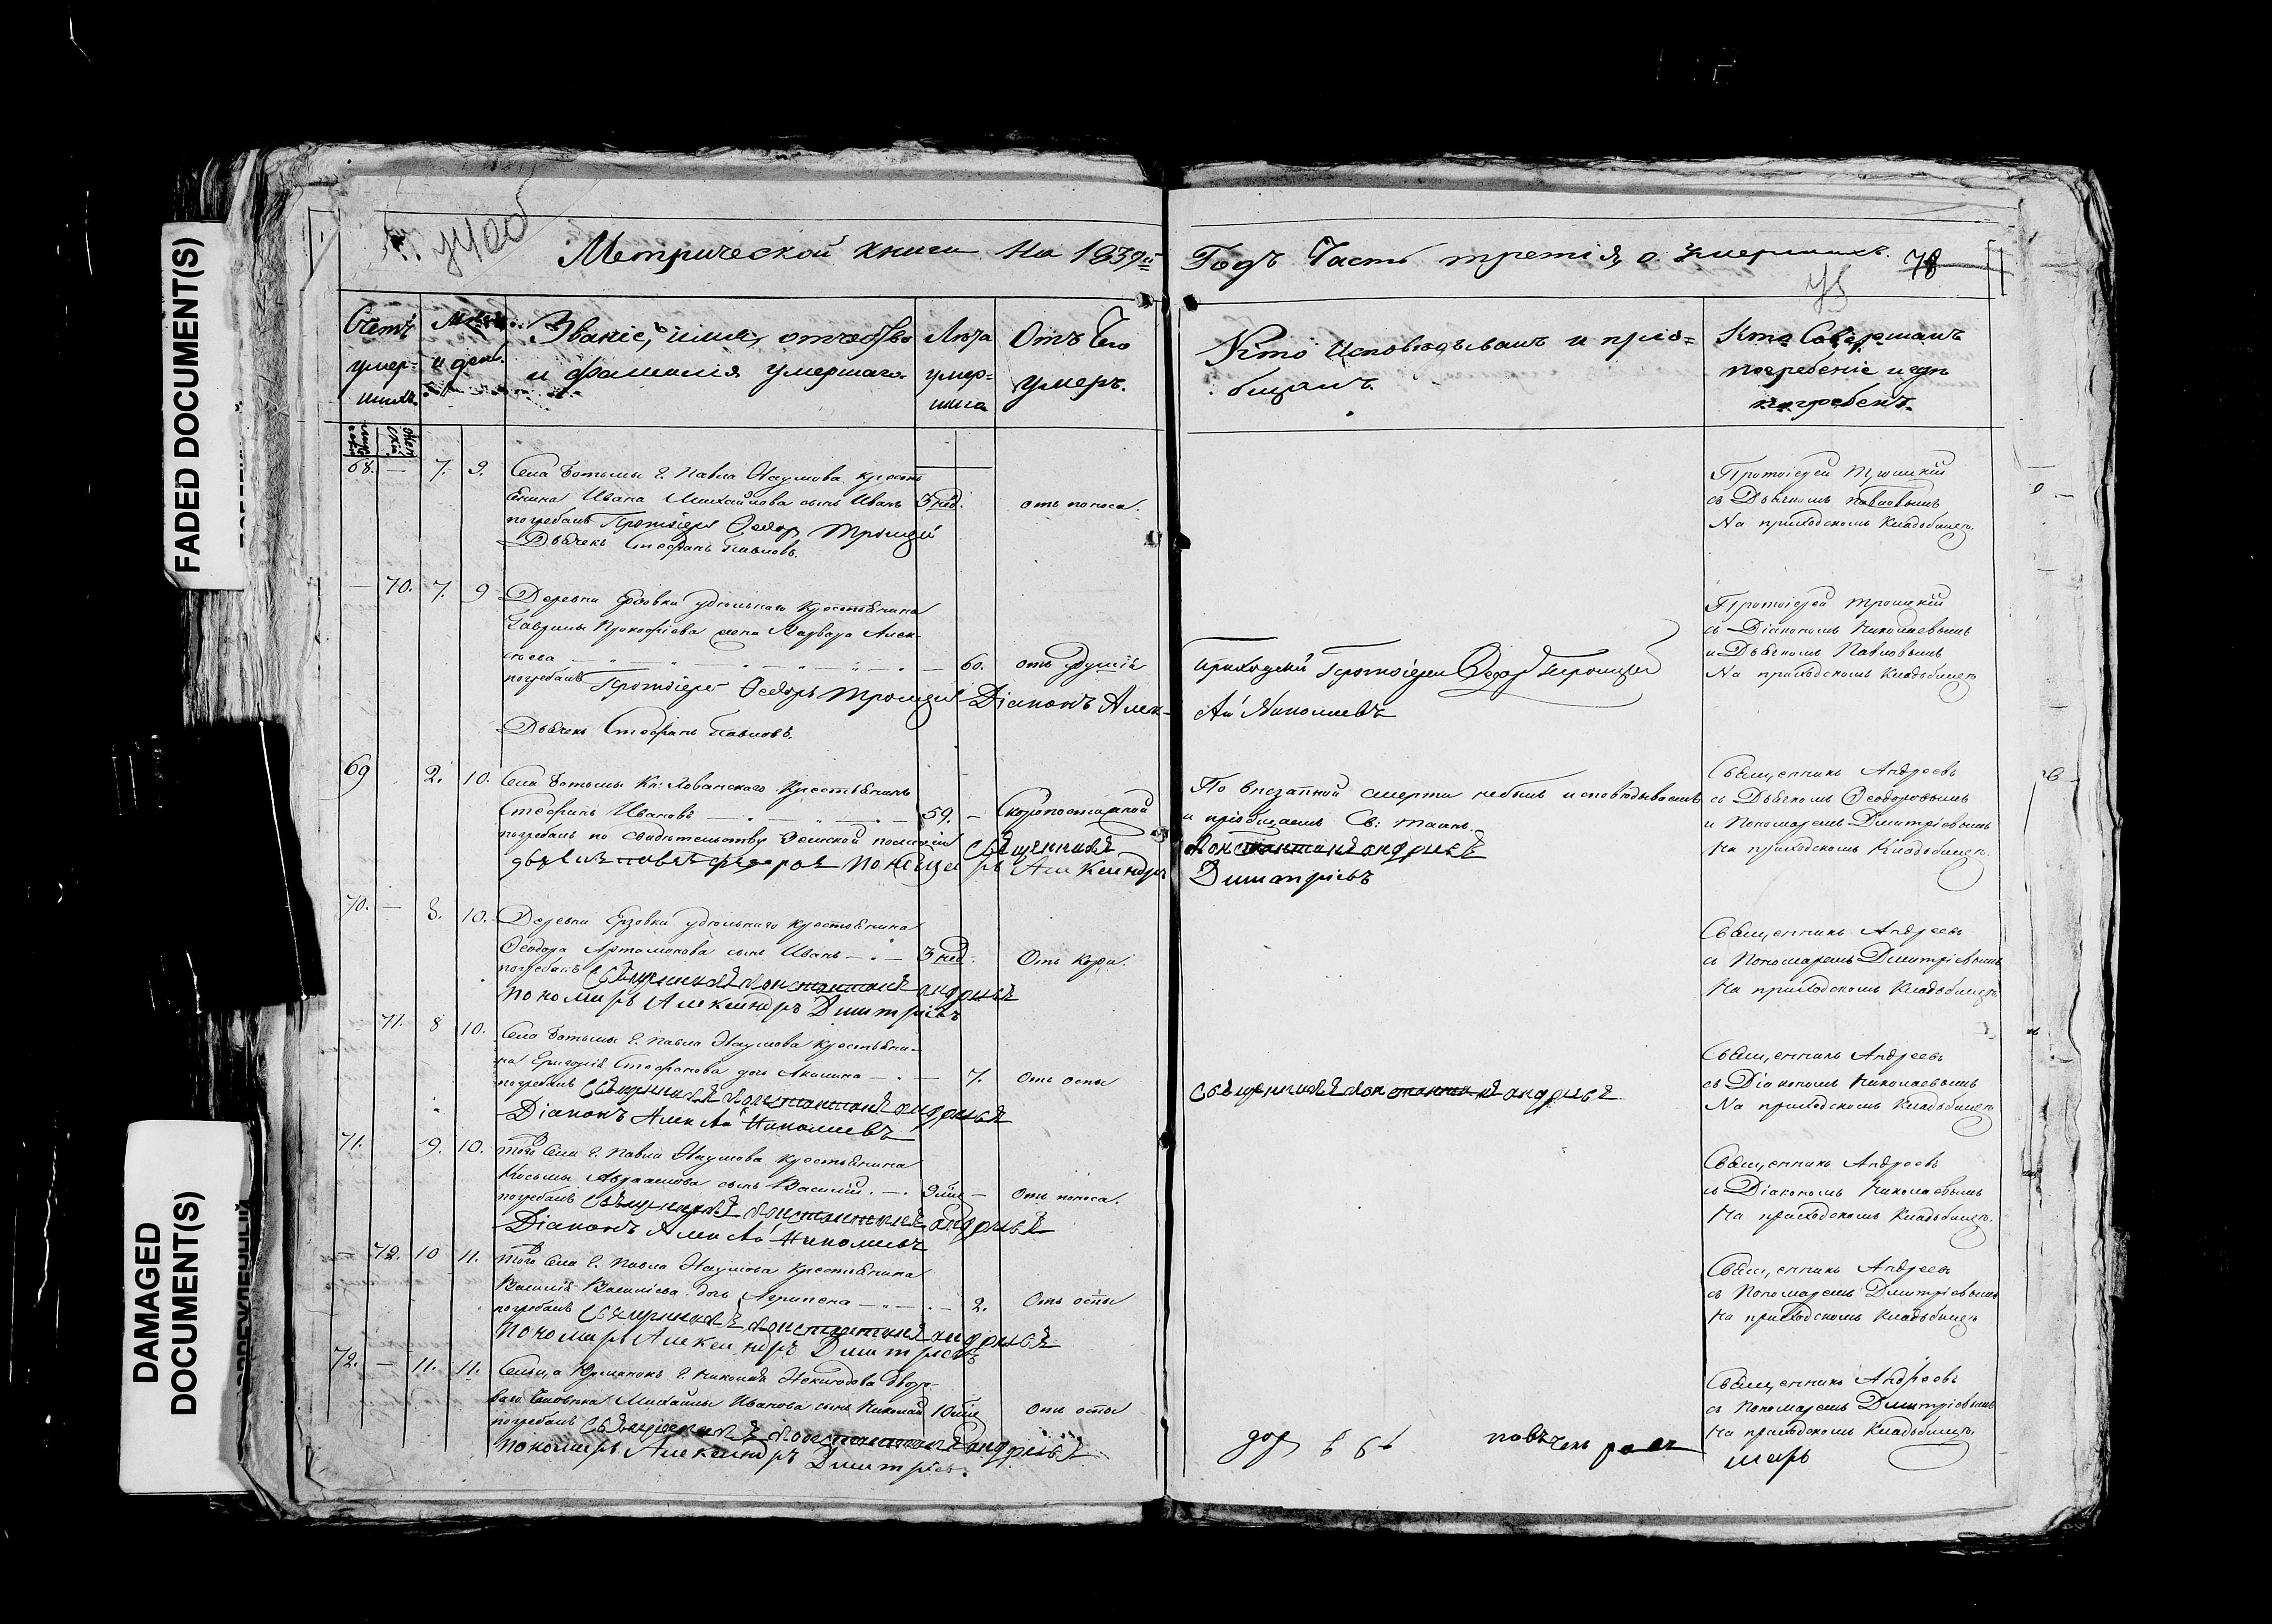 FADED DOCUMENT(S)
DAMAGED
DOCUMENT(S)
Метрической книги на 1839й
Годъ Часть третія, о умершихъ. 78
Счетъ умер-шихъ.
и день.
Званіе, имя, отчество
и фамилія умершаго.
Лѣта
умер-
шаго
Отъ чего
умеръ.
Кто исповѣдывалъ и пріо=
бщалъ.
Кто совершалъ
погребеніе и гдѣ
погребенъ.
68. — 7. 9. Села Ботьмы Г. Павла Наумова кресть
янина Ивана Михайлова сынъ Иванъ 3 нед. отъ поноса.
погребалъ Протоіерей Ѳеодор Троицкій
Дьячекъ Стефанъ Павловъ.
Протоіерей Троицкій
съ Дьячкомъ Павловымъ
На приходскомъ Кладбищѣ.
— 70. 7. 9 Деревни Ерзовки удѣльнаго крестьянина
Гаврилы Прокофіева жена Варвара Алек-
сѣева — 60. отъ удушія
погребалъ Протоіерей Ѳеодоръ Троицкій Діаконъ Алек-
сѣй Николаевъ
Дьячекъ Стефанъ Павловъ.
приходскій Протоіерей Ѳеодор Троицкій
Протоіерей Троицкій
съ Діакономъ Николаевымъ
и Дьячкомъ Павловымъ
На приходскомъ Кладбищѣ
69 2. 10. Села Ботьмы Кн: Хованскаго крестьянинъ
Стефанъ Ивановъ — 59. — Скоропостижной
погребалъ по свидѣтельству Земской полиціи Священникъ
Константинъ Андреевъ
Пономарь Александръ
Димитріевъ
По внезапной смерти небылъ исповѣдываемъ
и пріобщаемъ Св: таинъ.
Священникъ Андреевъ
съ Дьячкомъ Ѳеодоровымъ
и Пономаремъ Димитріевымъ
На приходскомъ Кладбищѣ.
70. — 8. 10. Деревни Ерзовки удѣльнаго крестьянина
Ѳеодора Артамонова сынъ Иванъ — 3 нед. Отъ кори.
погребалъ Священникъ Константинъ Андреевъ
Пономарь Александръ Димитріевъ
Священникъ Андреевъ
съ Пономаремъ Димитріевымъ
На приходскомъ Кладбищѣ
71. 8 10. Села Ботьмы Г. Павла Наумова крестьяни-
на Григорія Стефанова дочь Акилина — 7. Отъ оспы
погребалъ Священникъ Константинъ Андреевъ
Діаконъ Алексѣй Николаевъ
Священникъ Константинъ Андреевъ
Священникъ Андреевъ
съ Діакономъ Николаевымъ
На приходскомъ Кладбищѣ
71. 9. 10. Того села Г. Павла Наумова крестьянина
Косьмы Авраамова сынъ Василій. — Отъ поноса.
погребалъ Священникъ Константинъ Андреевъ
Діаконъ Алексѣй Николаевъ
Священникъ Андреевъ
съ Діакономъ Николаевымъ
На приходскомъ Кладбищѣ.
— 72. 10 11. Того села Г. Павла Наумова крестьянина
Василія Васильева дочь Агрипена — 2. Отъ оспы
погребалъ Священникъ Константинъ Андреевъ
Пономарь Александръ Димитріевъ
Священникъ Андреевъ
съ Пономаремъ Димитріевымъ
На приходскомъ Кладбищѣ
72. — 11. 11. Сельца Г. Николая двор-
Михайлы Иванова сынъ Николай Отъ оспы
погребалъ Священникъ Константинъ Андреевъ
Пономарь Александръ Димитріевъ.
Священникъ Андреевъ
съ Пономаремъ Димитріевымъ
На приходскомъ Кладбищѣ.